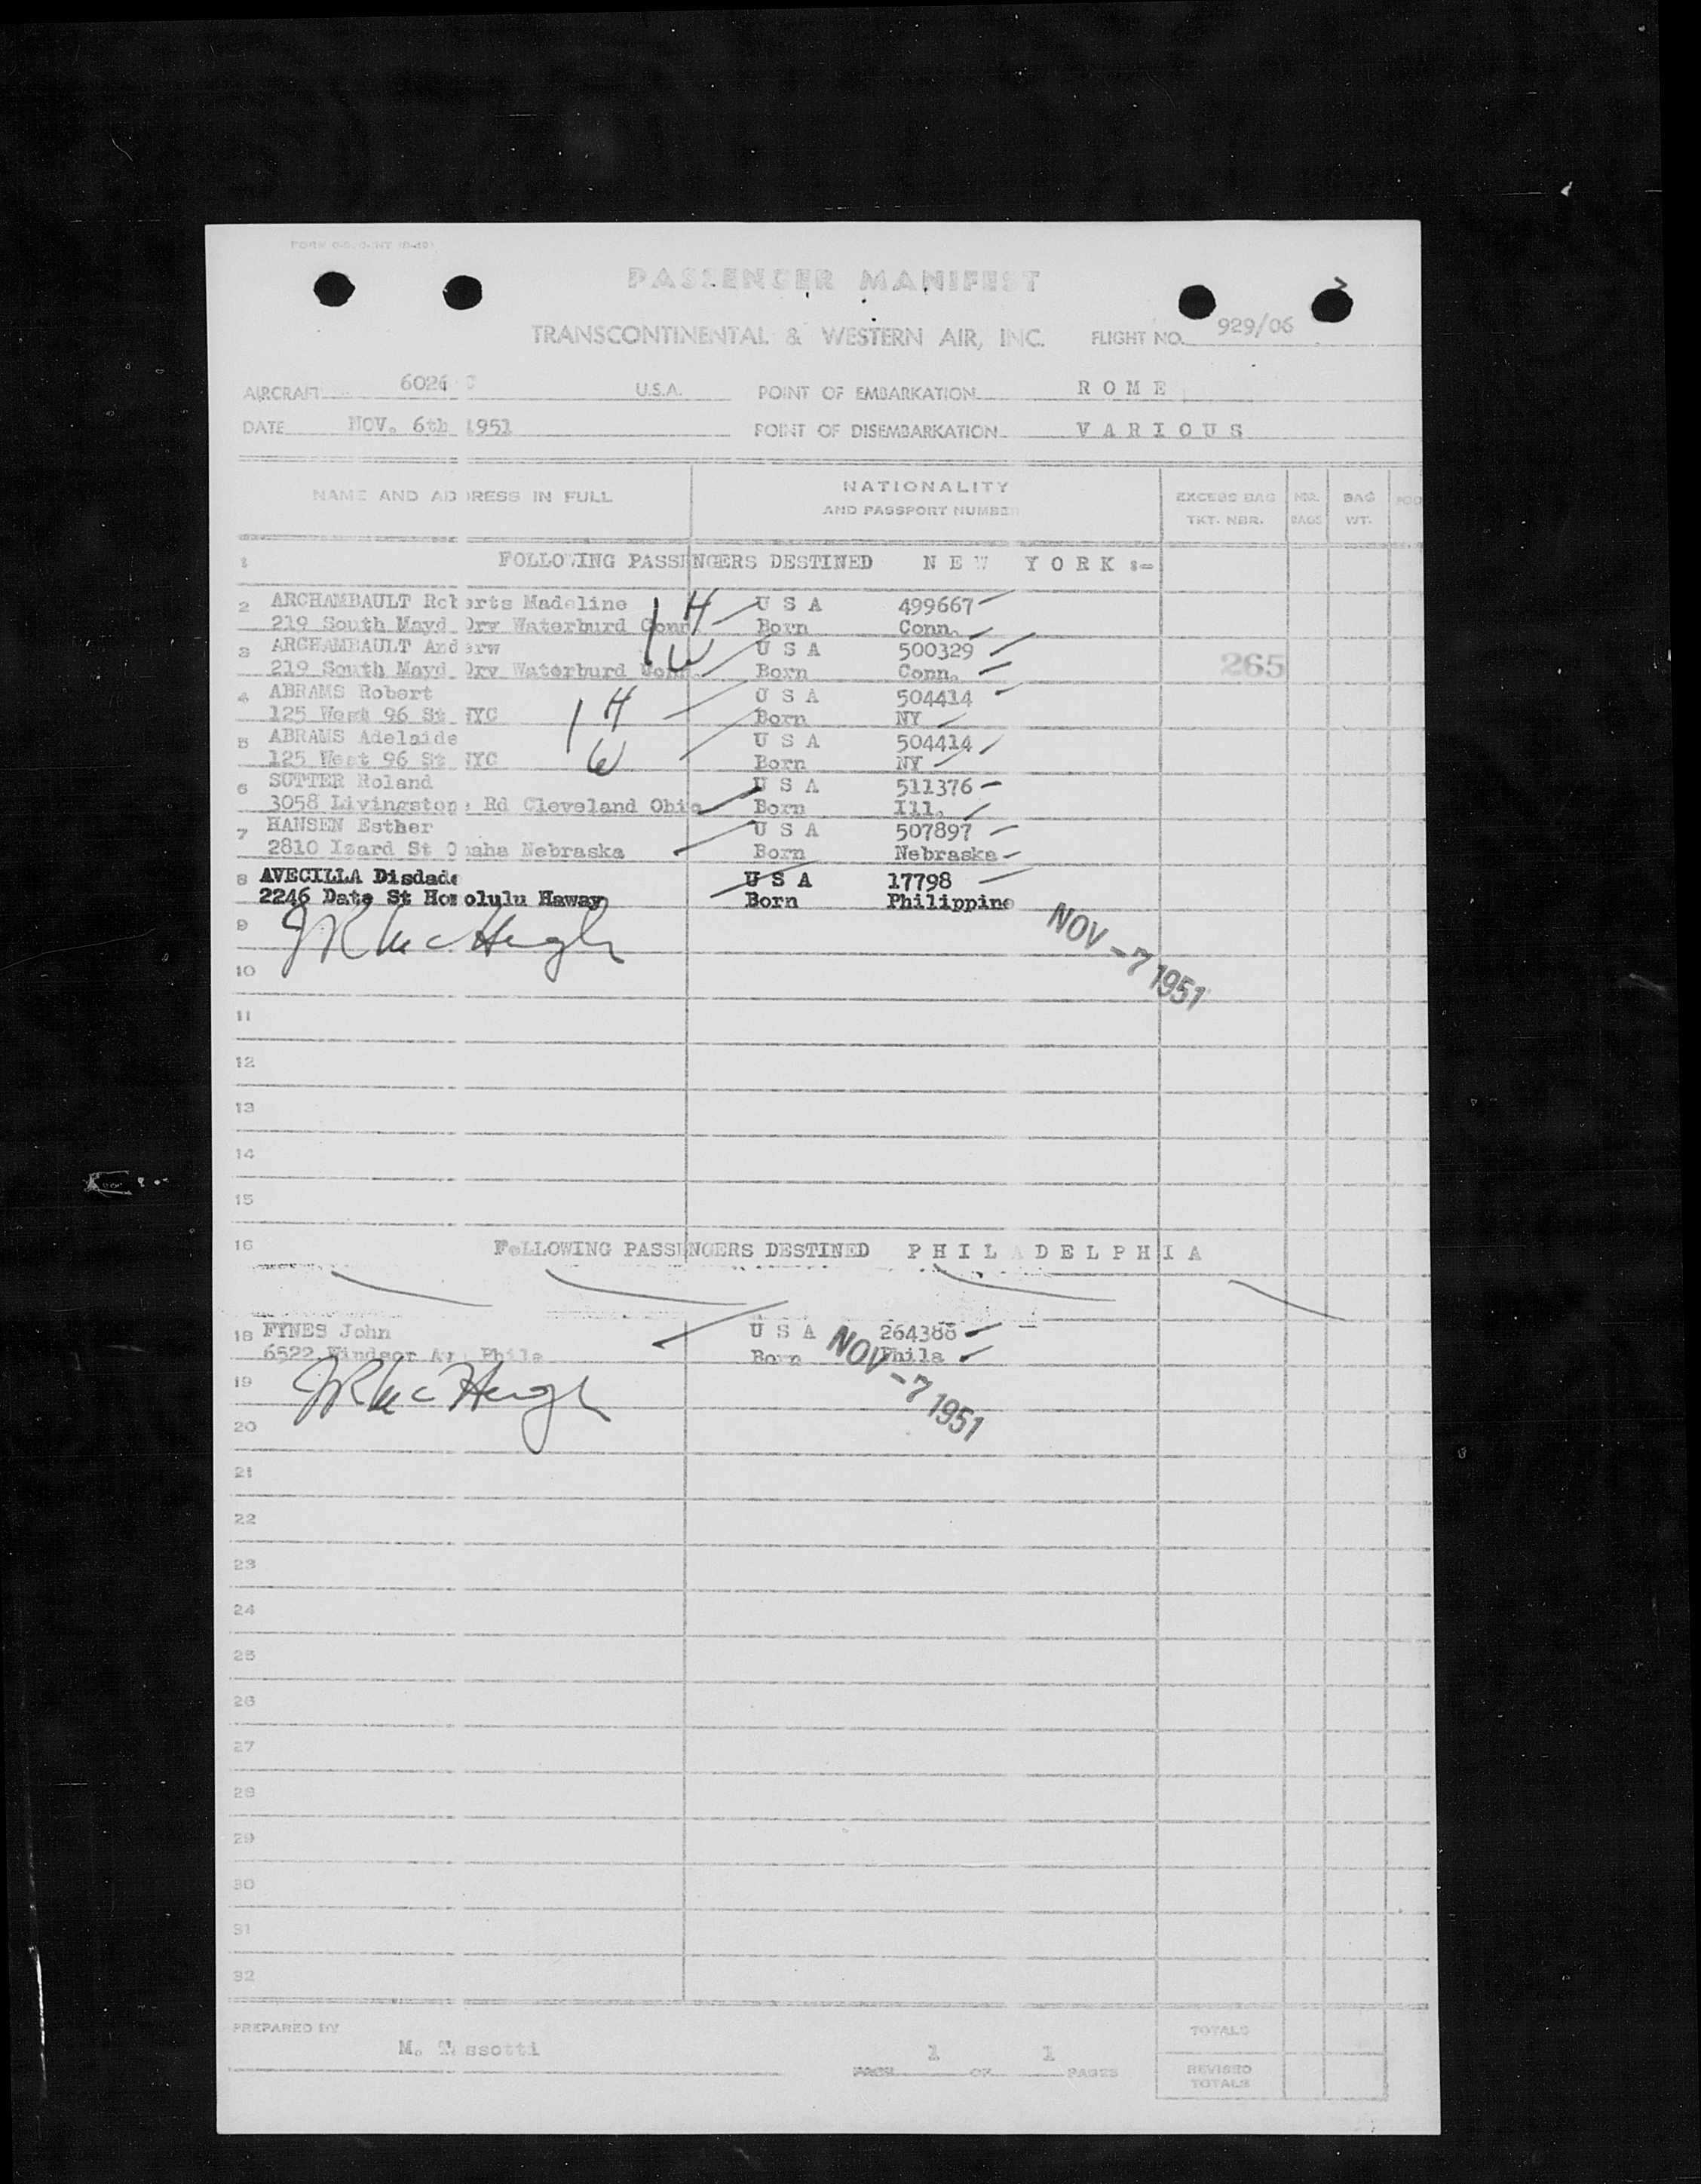 PASSENGER MANIFEST
TRANSCONTINENTAL & WESTERN AIR, INC. FLIGHT NO. 929/06
AIRCRAFT 6026 C U.S.A. POINT OF EMBARKATION ROME
DATE NOV. 6th 1951 POINT OF DISEMBARKATION VARIOUS
NAME AND ADDRESS IN FULL NATIONALITY AND PASSPORT NUMBER EXCESS BAG TKT. NBR. NBR. BAGS BAG WT.
1 FOLLOWING PASSENGERS DESTINED NEW YORK :-
2 ARCHAMBAULT Roberts Madeline H U S A 499667
219 South Mayd Dry Waterburd Conn. Born Conn.
3 ARCHAMBAULT Anderw W U S A 500329
219 South Mayd Dry Waterburd Conn. Born Conn. 265
4 ABRAMS Robert H U S A 504414
125 West 96 St NYC Born NY
5 ABRAMS Adelaide W U S A 504414
125 West 96 St NYC Born NY
6 SUTTER Roland U S A 511376
3058 Livingstone Rd Cleveland Ohio Born Ill.
7 HANSEN Esther U S A 507897
2810 Izard St Omaha Nebraska Born Nebraska
8 AVECILLA Disdade U S A 17798
2246 Date St Honolulu Haway Born Philippine
9 JR McHugh NOV -7 1951
10
11
12
13
14
15
16 FoLLOWING PASSENGERS DESTINED PHILADELPHIA
18 FYNES John U S A 264388
6522 Windsor Av. Phila Born Phila
19 JR McHugh NOV -7 1951
20
21
22
23
24
25
26
27
28
29
30
31
32
PREPARED BY M. Tassotti PAGE 1 OF 1 PAGES
TOTALS
REVISED TOTALS